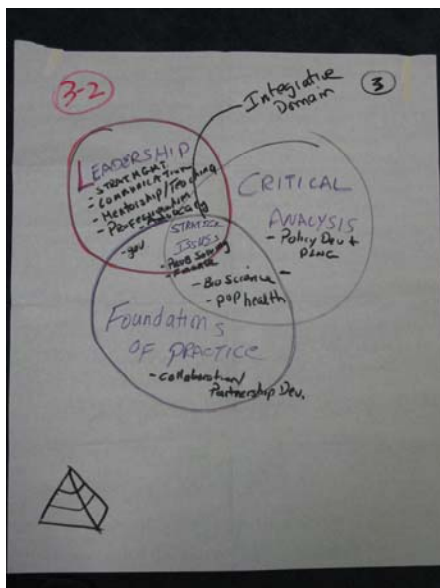 3-2
3
Integrative
Domain
LEADERSHIP
- STRAT MGMT
- COMMUNICATION
- Mentorship/Teaching
- Professionalism
- Advocacy
- gov
CRITICAL
ANALYSIS
- Policy Dev +
STRATEGIC
ISSUES
- Prob Solving
- Finance
- Bio Science -
- pop health
Foundations
OF PRACTICE
- collaboration/
Partnership Dev.